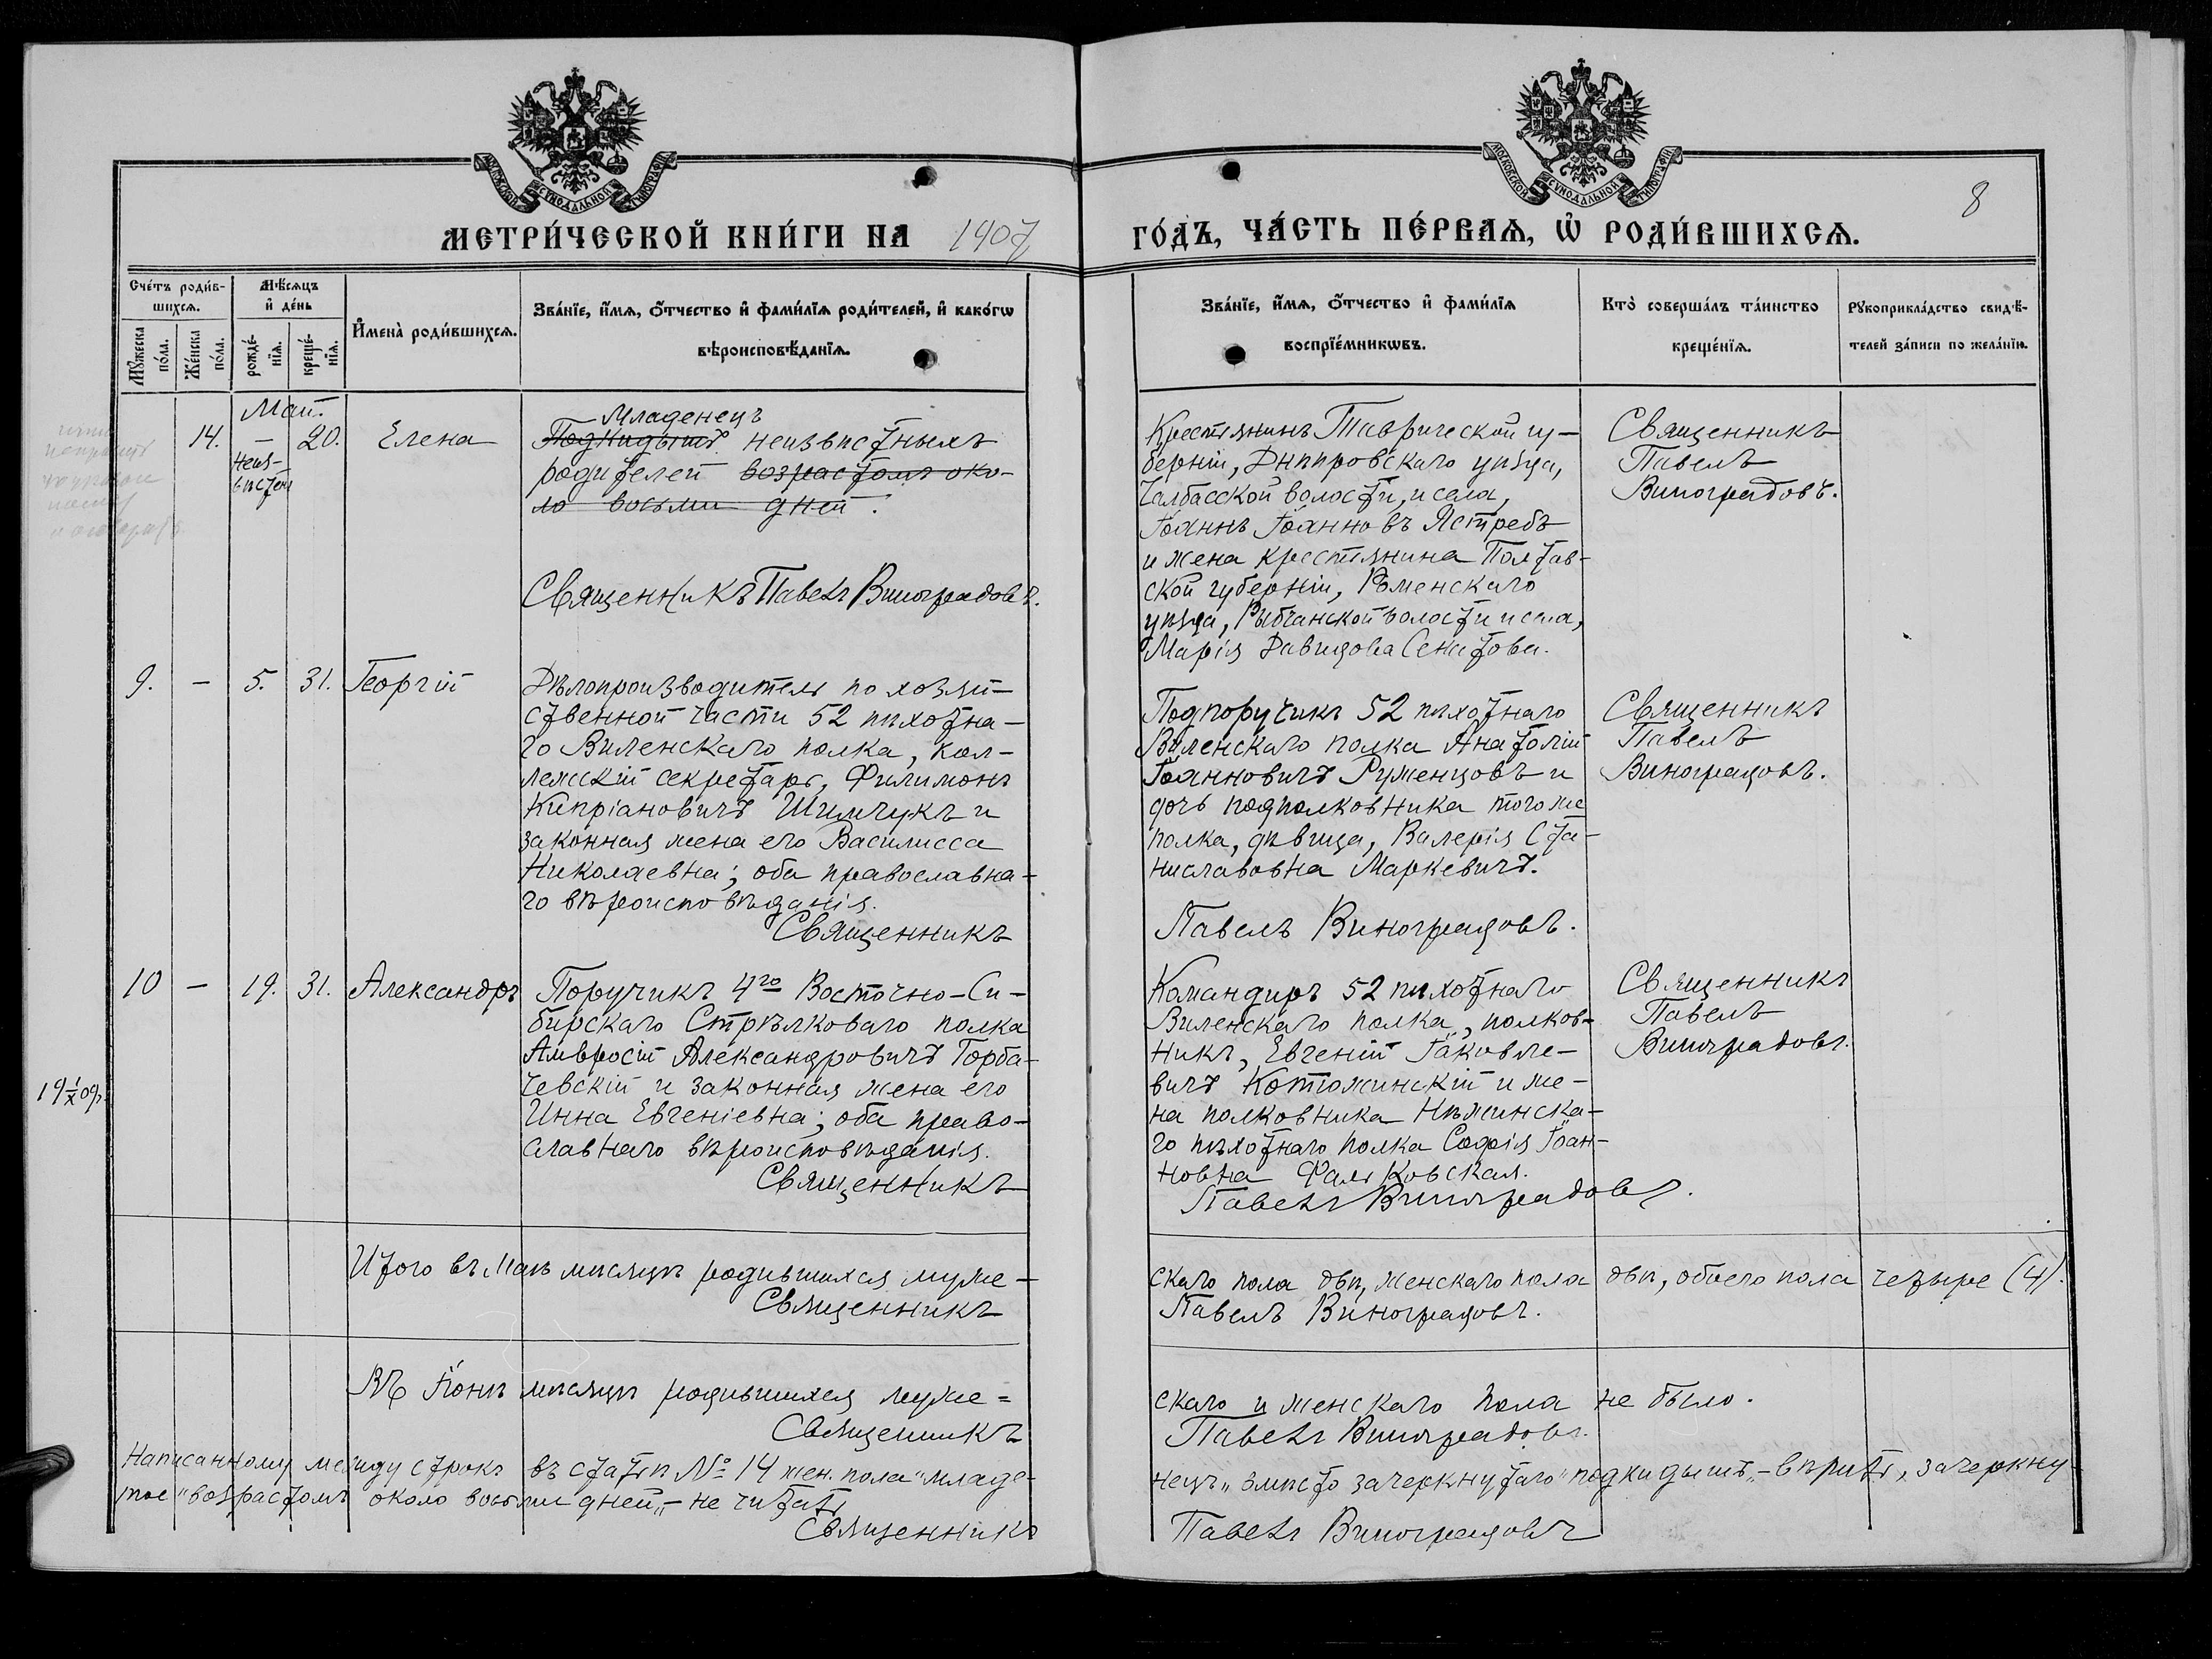 МОСКОВСКОЙ СѴНОДАЛЬНОЙ ТИПОГРАФІИ
МОСКОВСКОЙ СѴНОДАЛЬНОЙ ТИПОГРАФІИ
8
МЕТРИ́ЧЕСКОЙ КНИ́ГИ НА 1907 ГО́ДЪ, ЧА́СТЬ ПЕ́РВАѦ, Ѡ҆ РОДИ́ВШИХСѦ.
Сче́тъ роди́в-
шихсѧ.
Мѹ́жеска по́ла.
Же́нска по́ла.
Мѣ́сѧцъ
и҆ де́нь
рожде́-
нїѧ.
креще́-
нїѧ.
И҆мена̀ роди́вшихсѧ.
Зва́нїе, и҆́мѧ, о҆́тчество и҆ фами́лїѧ роди́телей, и҆ како́гѡ
вѣроисповѣ́данїѧ.
Зва́нїе, и҆́мѧ, о҆́тчество и҆ фами́лїѧ
воспрїе́мникѡвъ.
Кто̀ соверша́лъ та́инство
креще́нїѧ.
Рѹкоприкла́дство свидѣ́-
телей за́писи по жела́нїю.
Май.
14.
—
Неиз-
вѣстен
20.
Елена
Младенецъ
Подкидышъ неизвѣстныхъ
родителей возрастомъ око-
ло восьми дней.
Священникъ Павелъ Виноградовъ.
Крестьянинъ Таврической гу-
берніи, Днѣпровскаго уѣзда,
Чалбасской волости, и села,
Іоаннъ Іоанновъ Ястребъ
и жена крестьянина Полтав-
ской губерніи, Роменскаго
уѣзда, Рыбчанской волости и села,
Марія Давидова Сенатова.
Священникъ
Павелъ
Виноградовъ.
9. — 5. 31. Георгій
Дѣлопроизводитель по хозяй-
ственной части 52 пѣхотна-
го Виленскаго полка, кол-
лежскій секретарь, Филимонъ
Кипріановичъ Шимчукъ и
законная жена его Василисса
Николаевна; оба православна-
го вѣроисповѣданія.
Священникъ
Подпоручикъ 52 пѣхотнаго
Виленскаго полка Анатолій
Іоанновичъ Руженцовъ и
дочь подполковника тогоже
полка, дѣвица, Валерія Ста-
ниславовна Маркевичъ.
Павелъ Виноградовъ.
Священникъ
Павелъ
Виноградовъ.
10 — 19. 31. Александръ
19 1/X 09г.
Поручикъ 4го Восточно-Си-
бирскаго Стрѣлковаго полка
Амвросій Александровичъ Горба-
чевскій и законная жена его
Инна Евгеніевна; оба право-
славнаго вѣроисповѣданія.
Священникъ
Командиръ 52 пѣхотнаго
Виленскаго полка, полков-
никъ, Евгеній Іаковле-
вичъ Котюжинскій и же-
на полковника Нѣжинска-
го пѣхотнаго полка Софія Іоан-
новна Фальковская.
Павелъ Виноградовъ.
Священникъ
Павелъ
Виноградовъ.
Итого въ Маѣ мѣсяцѣ родившихся муже-
скаго пола два, женскаго пола двѣ, обоего пола четыре (4).
Священникъ
Павелъ Виноградовъ.
Въ Іюнѣ мѣсяцѣ родившихся муже=
скаго и женскаго пола не было.
Священникъ
Павелъ Виноградовъ.
Написанному между строкъ въ статьѣ № 14 жен. пола "младе-
нецъ" вмѣсто зачеркнутаго "подкидышъ" - вѣрить, зачеркну-
тое "возрастомъ около восьми дней" - не читать
Священникъ
Павелъ Виноградовъ